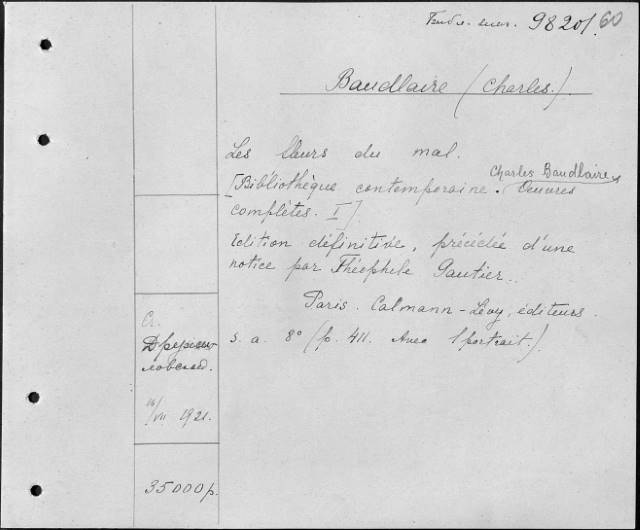 9820/60
Baudlaire (Charles.)
Les fleurs du mal.
[Bibliothèque contemporaine. Charles Baudlaire, Oeuvres
complètes. I].
Edition définitive, précédée d'une
notice par Théophile Gautier.
Paris. Calmann-Lévy, éditeurs.
s. a. 8° (p. 411. Avec 1 portrait.)
VII 1921.
35000р.